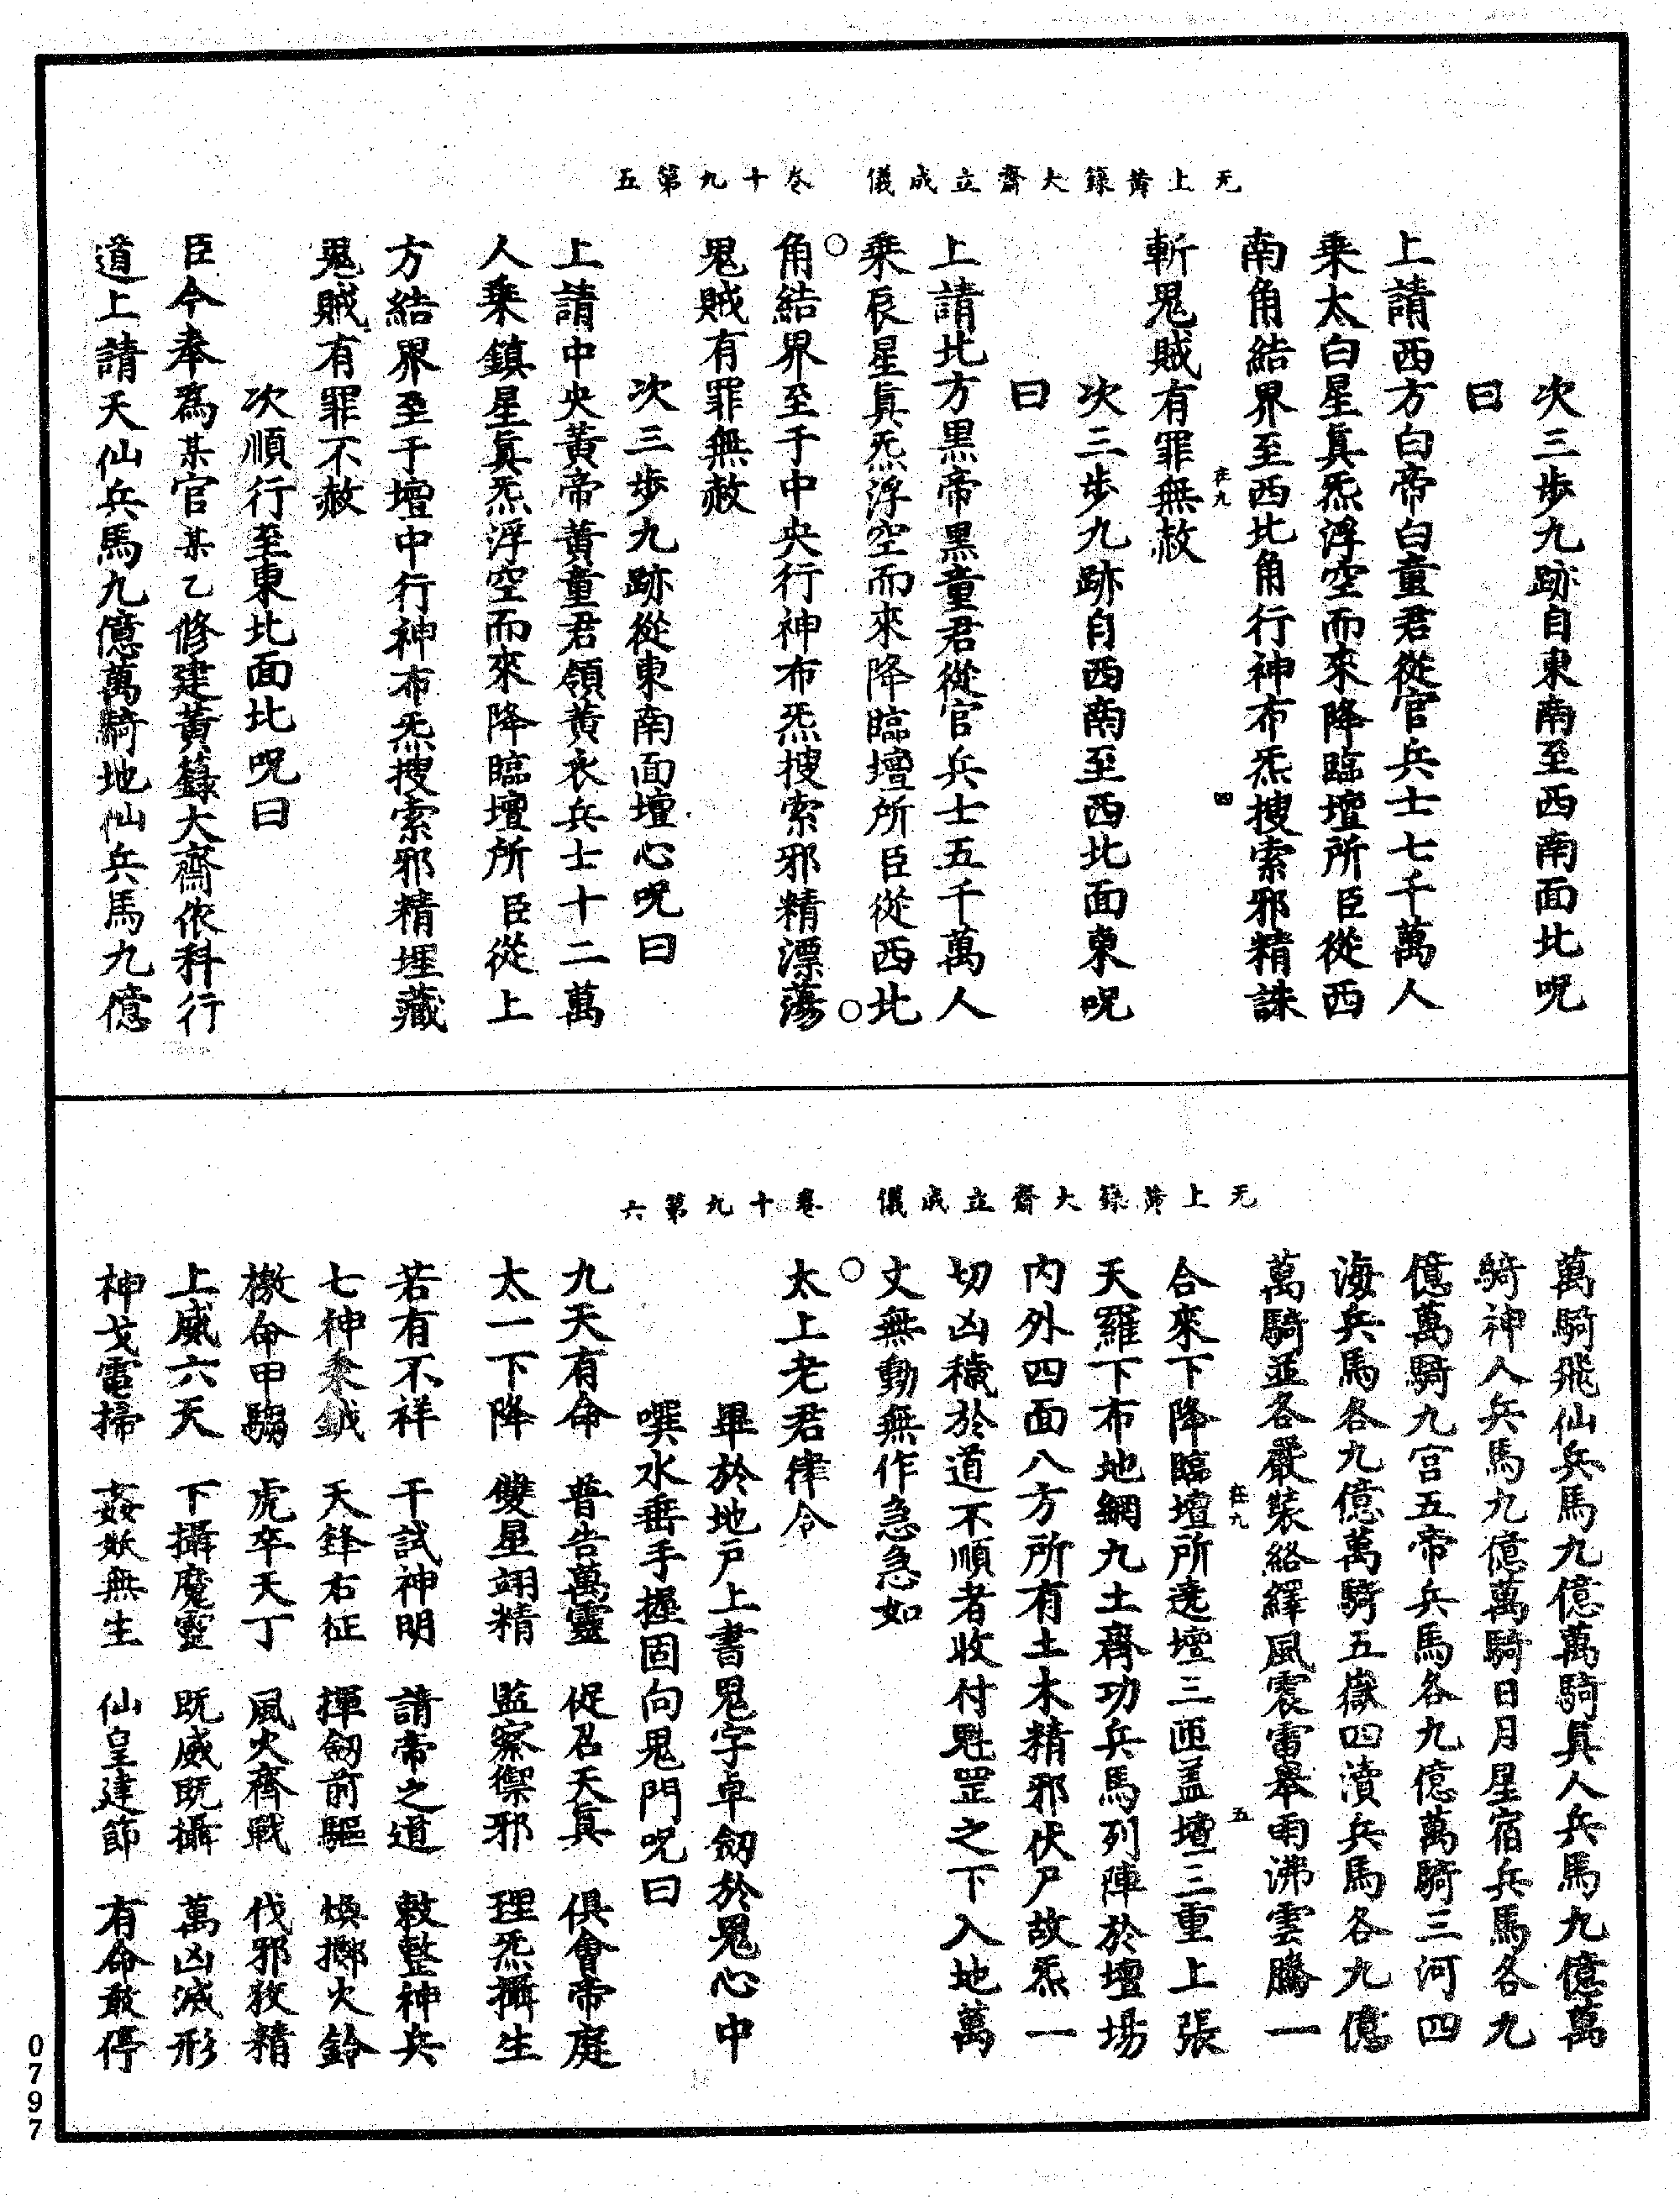 无上黃籙大齋立成儀　卷十九第五
次三步九跡自東南至西南面北呪
曰
上請西方白帝白童君從官兵士七千萬人
乘太白星眞炁浮空而來降臨壇所臣從西
南角結界至西北角行神布炁搜索邪精誅
在九　四
斬鬼賊有罪無赦
次三步九跡自西南至西北面東呪
曰
上請北方黑帝黑童君從官兵士五千萬人
乘辰星眞炁浮空而來降臨壇所臣從西北
角結界至于中央行神布炁搜索邪精漂蕩
鬼賊有罪無赦
次三步九跡從東南面壇心呪曰
上請中央黃帝黃童君領黃衣兵士十二萬
人乘鎮星眞炁浮空而來降臨壇所臣從上
方結界至于壇中行神布炁搜索邪精埋藏
鬼賊有罪不赦
次順行至東北面北呪曰
臣今奉爲某官某乙修建黃籙大齋依科行
道上請天仙兵馬九億萬騎地仙兵馬九億
无上黃籙大齋立成儀　卷十九第六
萬騎飛仙兵馬九億萬騎眞人兵馬九億萬
騎神人兵馬九億萬騎日月星宿兵馬各九
億萬騎九宮五帝兵馬各九億萬騎三河四
海兵馬各九億萬騎五嶽四瀆兵馬各九億
萬騎並各嚴裝絡繹風震雷舉雨沸雲騰一
在九　五
合來下降臨壇所遶壇三匝蓋壇三重上張
天羅下布地網九土齊功兵馬列陣於壇場
內外四面八方所有土木精邪伏尸故炁一
切凶穢於道不順者收付魁罡之下入地萬
丈無動無作急急如
太上老君律令
畢於地戶上書鬼字卓劒於鬼心中
噀水垂手握固向鬼門呪曰
九天有命　普告萬靈　促召天眞　俱會帝庭
太一下降　雙星翊精　監察禦邪　理炁攝生
若有不祥　干試神明　請帝之道　敕整神兵
七神秉鉞　天鋒右征　揮劒前驅　煥擲火鈴
檄命甲騶　虎卒天丁　風火齊戰　伐邪狡精
上威六天　下攝魔靈　既威既攝　萬凶滅形
神戈電掃　姦妖無生　仙皇建節　有命敢停
0797